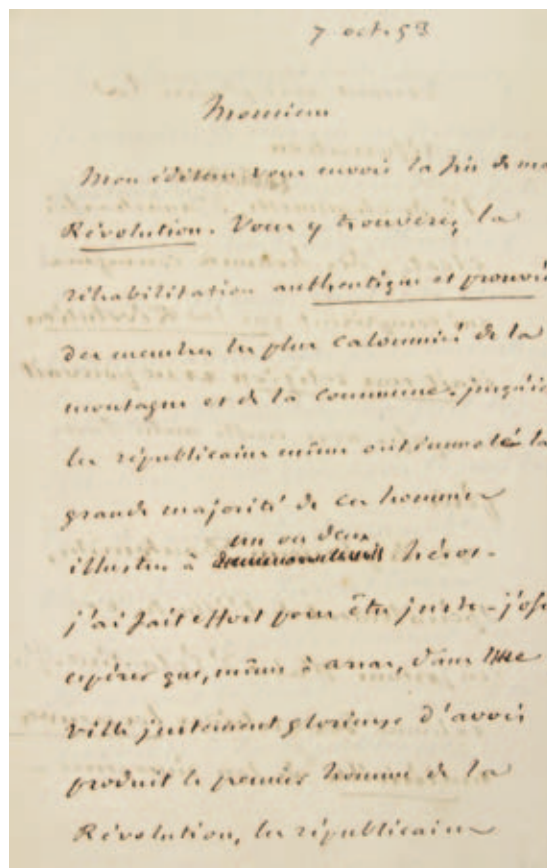 7 oct. 53
Monsieur
Mon éditeur vous envoie la fin de ma
Révolution. Vous y trouverez la
réhabilitation authentique et prouvée
des membres les plus calomniés de la
montagne et de la commune. jusqu'ici
les républicains même ont immolé la
grande majorité de ces hommes
un ou deux
illustres à héros.
j'ai fait effort pour être juste - j'ose
espérer que, même à arras, dans
ville justement glorieuse d'avoir
produit le premier homme de la
Révolution, les républicains